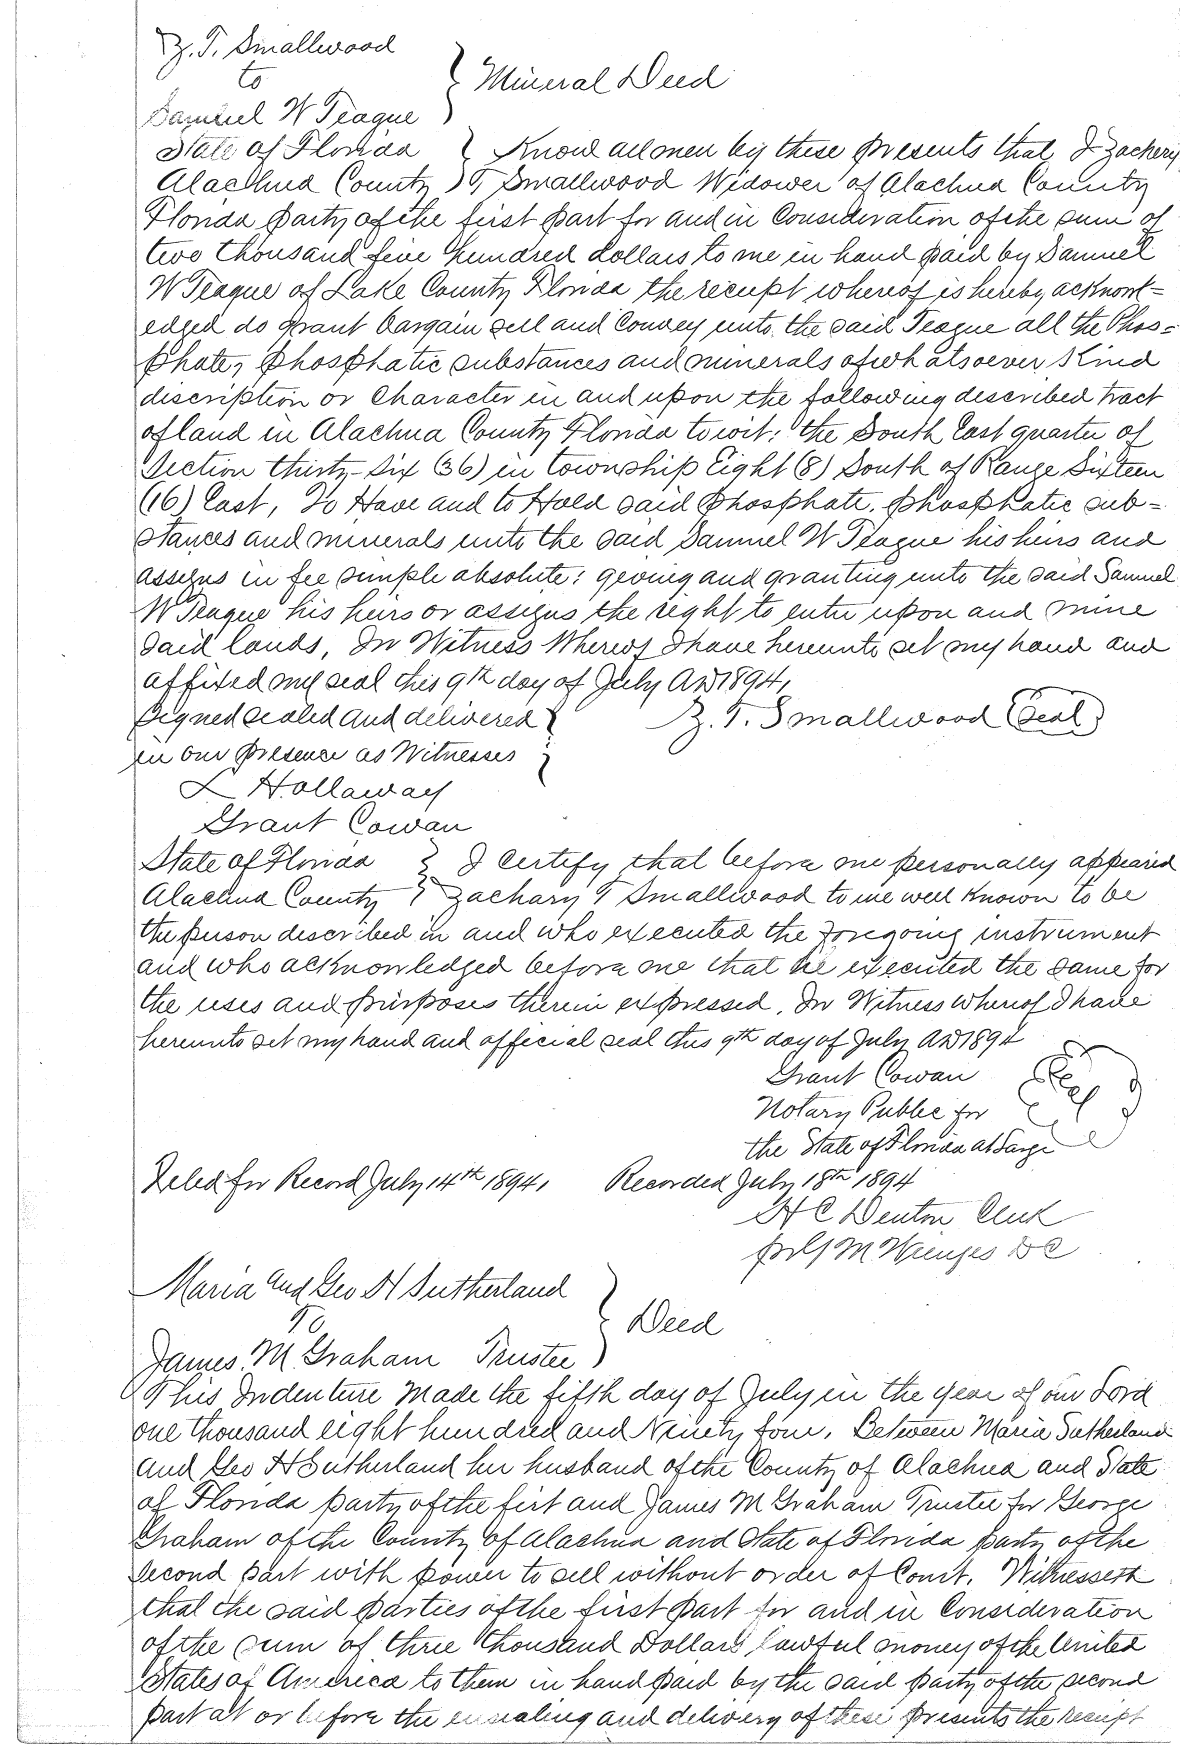 Z. T. Smallwood
to
Samuel W Teague
} Mineral Deed
State of Florida } Know all men by these presents that I Zachery
Alachua County } T Smallwood Widower of Alachua County
Florida party of the first part for and in Consideration of the sum of
two thousand five hundred dollars to me in hand paid by Samuel
W Teague of Lake County Florida the receipt whereof is hereby acknowl=
edged do grant bargain sell and Convey unto the said Teague all the Phos=
phate, phosphatic substances and minerals of whatsoever Kind
discription or Character in and upon the following described tract
of land in Alachua County Florida to wit: the South East quarter of
Section thirty-six (36) in township Eight (8) South of Range Sixteen
(16) East, To Have and to Hold said phosphate, phosphatic sub=
stances and minerals unto the said Samuel W Teague his heirs and
assigns in fee simple absolute: giving and granting unto the said Samuel
W Teague his heirs or assigns the right to enter upon and mine
said lands, In Witness Whereof I have hereunto set my hand and
affixed my seal this 9th day of July AD 1894,
Signed sealed and delivered } Z. T. Smallwood (Seal)
in our presence as Witnesses }
L Hollaway
Grant Cowan
State of Florida } I Certify that before me personally appeared
Alachua County } Zachary T Smallwood to me well known to be
the person described in and who executed the foregoing instrument
and who acknowledged before me that he executed the same for
the uses and purposes therein expressed. In Witness whereof I have
hereunto set my hand and official seal this 9th day of July AD 1894
Grant Cowan
Seal
Notary Public for
the State of Florida at Large
Filed for Record July 14th 1894, Recorded July 18th 1894
H C Denton Clerk
M Wienges DC
Maria and Geo H Sutherland
To
James. M Graham Trustee
} Deed
This Indenture Made the fifth day of July in the year of our Lord
one thousand eight hundred and Ninety four, Between Maria Sutherland
and Geo H Sutherland her husband of the County of Alachua and State
of Florida party of the first and James M Graham Trustee for George
Graham of the County of Alachua and State of Florida party of the
second part with power to sell without order of Court. Witnesseth
that the said parties of the first part for and in Consideration
of the sum of three thousand Dollars lawful money of the United
States of America to them in hand paid by the said party of the second
part at or before the ensealing and delivery of these presents the receipt